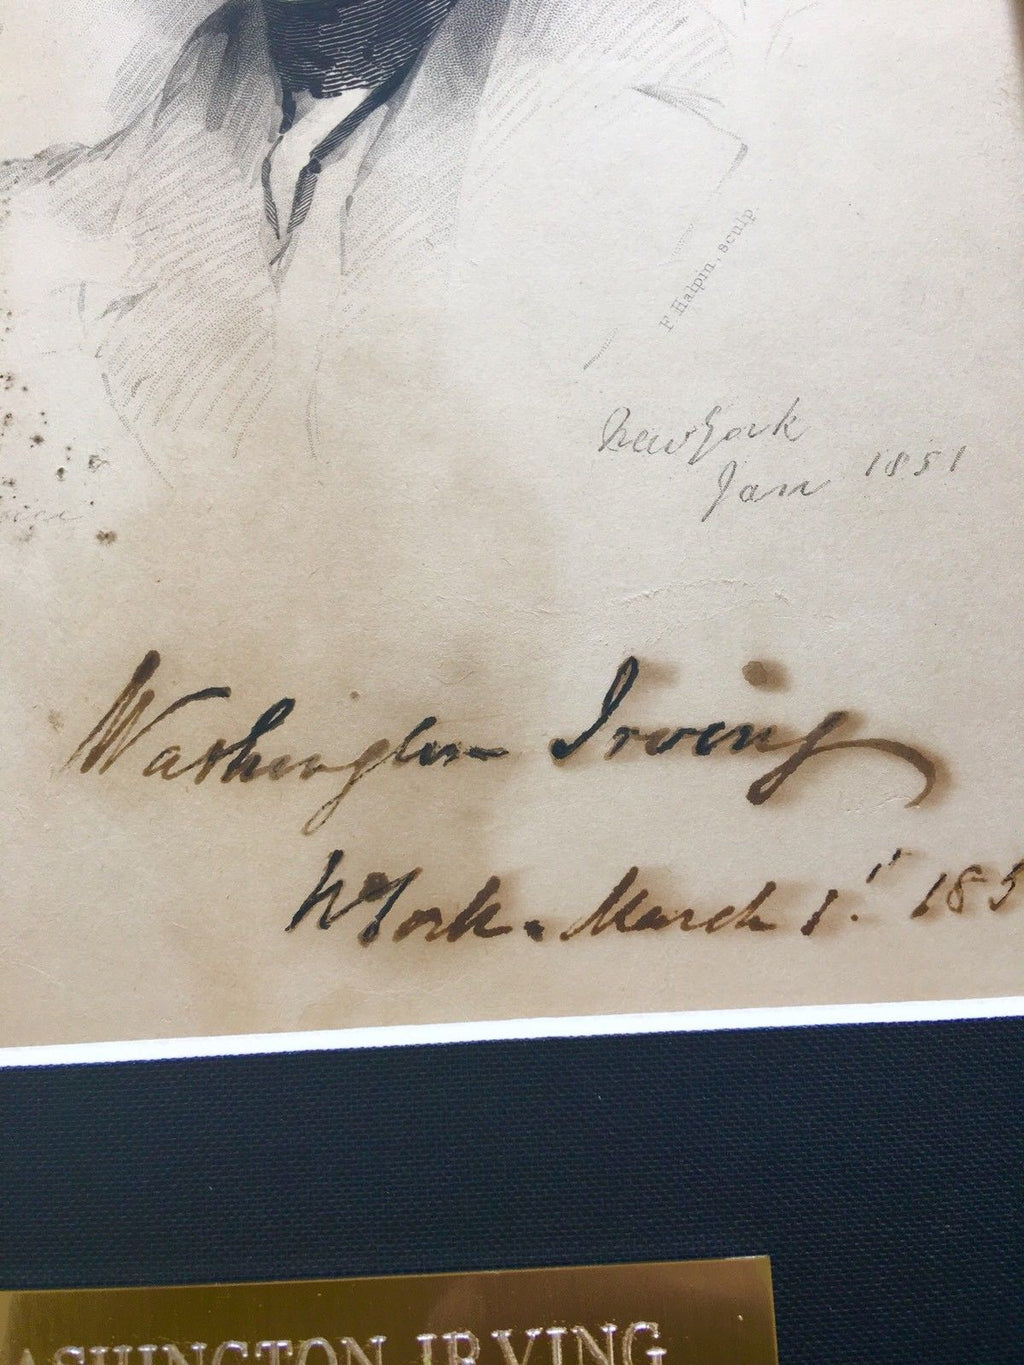 F Halpin, sculp.
New York
Jan 1851
Washington Irving
N York. March 1st. 185
ASHINGTON IRVING